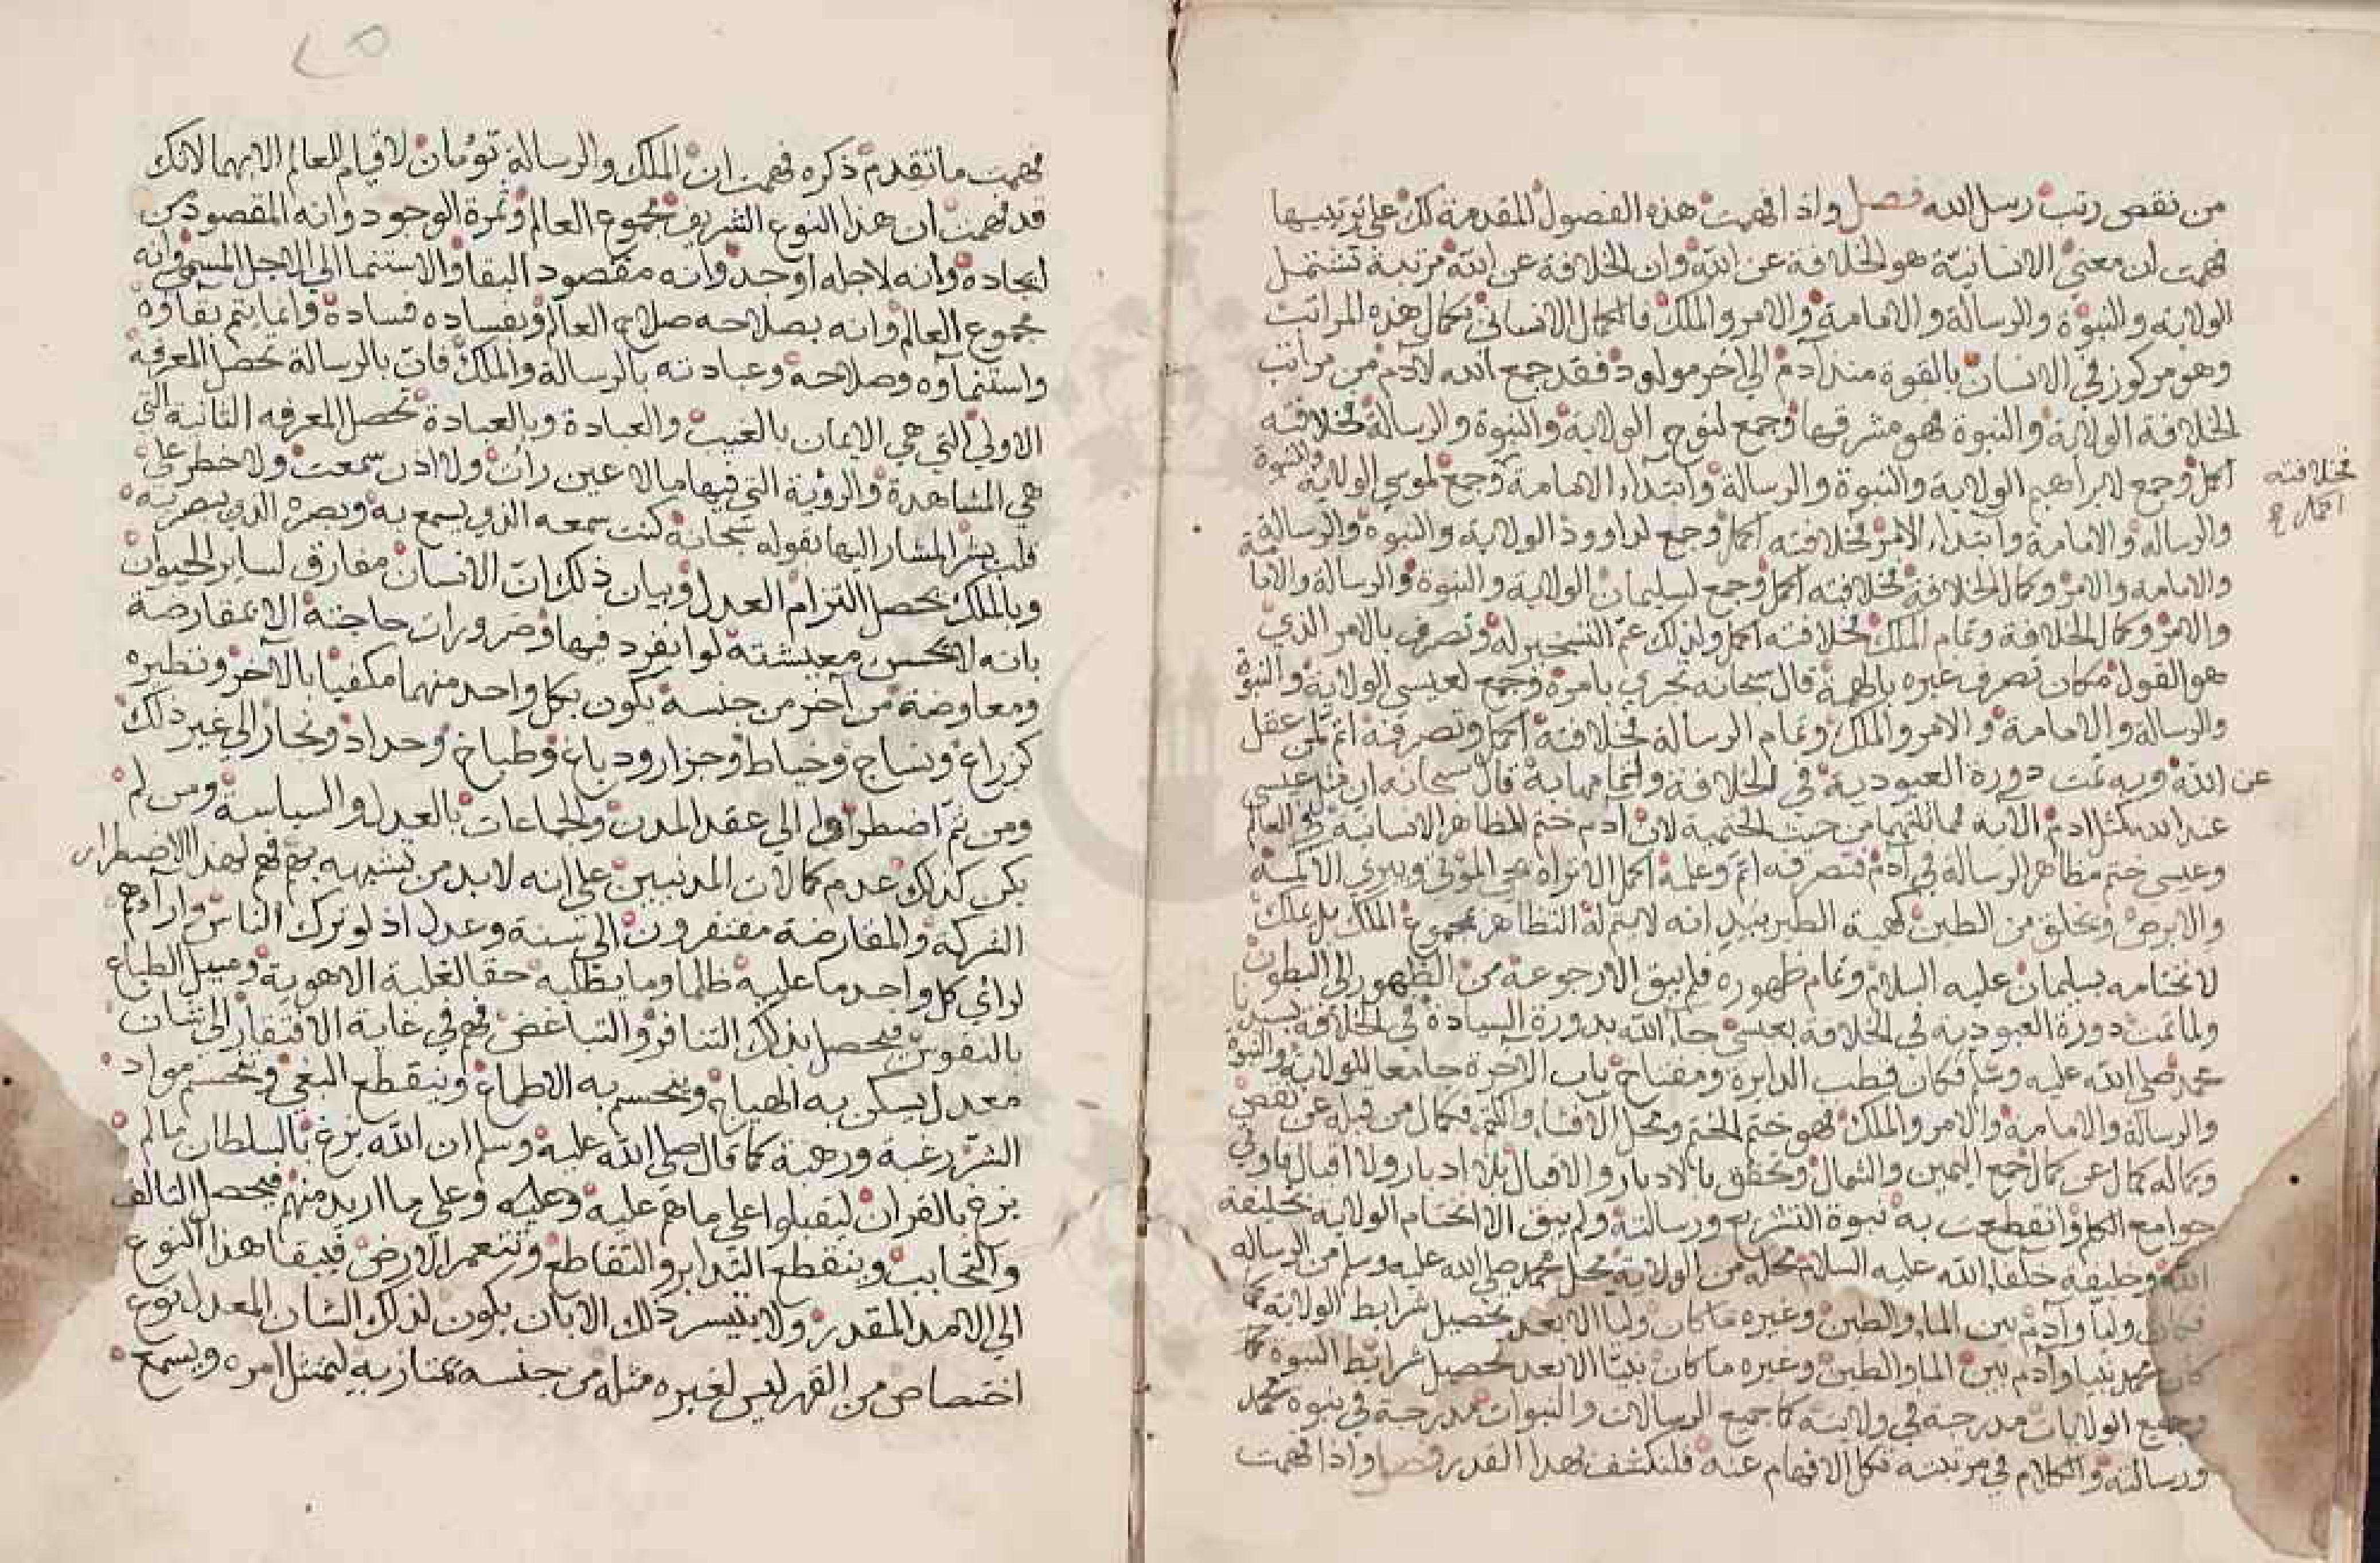 من نقص رتب رسل الله فصل واذا فهمت هذه الفصول المقدمة لك على ترتيبها
فهمت ان معنى الانسانية هو الخلافة عن الله وان الخلافة عن الله مرتبة تشتمل
الولاية والنبوة والرسالة والامامة والامر والملك فالكمال الانساني بكمال هذه المراتب
وهو مركوز في الانسان بالقوة منذ آدم الي اخر مولود فقد جمع الله لادم من مراتب
الخلافة الولاية والنبوة فهو مشرقها وجمع لنوح الولاية والنبوة والرسالة فخلافته
اكمل وجمع لابراهيم الولاية والنبوة والرسالة وابتداء الامامة وجمع لموسي الولاية والنبوة
فخلافته
اكمل
والرسالة والامامة وابتداء الامر فخلافته اكمل وجمع لداوود الولاية والنبوة والرسالة
والامامة والامر وكمال الخلافة فخلافته اكمل وجمع لسليمان الولاية والنبوة والرسالة والامامة
والامر وكمال الخلافة وتمام الملك فخلافته اكمل ولذلك عم التسخير له وتصرف بالامر الذي
هو القول مكان تصرف غيره بالهمة قال سبحانه تجري بامره وجمع لعيسى الولاية والنبوة
والرسالة والامامة والامر والملك وتمام الرسالة فخلافته اكمل وتصرفه اتم لمن عقل
عن الله وبه تمت دورة العبودية في الخلافة قال سبحانه ان مثل عيسى
عند الله كمثل ادم الآية فماثلتهما من حيث الختمية لان آدم ختم المظاهر الانسانية في العالم
وعيسى ختم مظاهر الرسالة في آدم فتصرفه اتم وعلمه اكمل الا تراه يحي الموتى ويبري الاكمه
والابرص ويخلق من الطين كهية الطير بيد انه لا يتم له التظاهر بمجموع الملك بل بملك
لاختتامه بسليمان عليه السلام وتمام ظهوره فلم يبق الا رجوعه من الظهور الى البطون
ولما تمت دورة العبودية في الخلافة بعيسى جاء الله بدورة السيادة في الخلافة بسيدنا
محمد صلى الله عليه وسلم فكان قطب الدايرة ومفتاح باب الآخرة جامعا للولاية والنبوة
والرسالة والامامة والامر والملك فهو ختم الختم ومحل الافشاء والكتم فكمال من قبله عن نقص
وكماله كمال عن كمال جمع اليمين والشمال وتحقق بالادبار والاقبال بلا ادبار ولا اقبال فاوتي
جوامع الكلم وانقطعت به نبوة التشريع ورسالته ولم يبق الا اختتام الولاية بخليفة
الله وخليفة خلفاء الله عليه السلام محله من الولاية محل محمد صلى الله عليه وسلم من الرسالة
فكان وليا وآدم بين الماء والطين وغيره ما كان وليا الا بعد تحصيل شرايط الولاية كما
كان محمد نبيا وآدم بين الماء والطين وغيره ما كان نبيا الا بعد تحصيل شرايط النبوة كما
وجميع الولايات مدرجة في ولايته كما جميع الرسالات والنبوات مدرجة في نبوة محمد
ورسالته والكلام في مرتبته تكل الافهام عنه فلنكتف بهذا القدر فصل واذا فهمت
فهمت ما تقدم ذكره فهمت ان الملك والرسالة توءمان لا قيام للعالم الا بهما لانك
قد فهمت ان هذا النوع الشريف مجموع العالم وثمرة الوجود وانه المقصود من
ايجاده وانه لاجله اوجد وانه مقصود البقاء والاستنما الى الاجل المسمى وانه
مجموع العالم وانه بصلاحه صلاح العالم وبفساده فساده وانما يتم بقاوه
واستنماوه وصلاحه وعبادته بالرسالة والملك فان بالرسالة تحصل المعرفة
الاولى التي هي الايمان بالغيب والعبادة وبالعبادة تحصل المعرفه الثانية التي
هي المشاهدة والروية التي فيها ما لا عين رأت ولا اذن سمعت ولا خطر على
قلب بشر المشار اليها بقوله سبحانه كنت سمعه الذي يسمع به وبصره الذي يبصر به
وبالملك يحصل التزام العدل وبيان ذلك ان الانسان مفارق لساير الحيوان
بانه لا تحسن معيشته لو انفرد فيها وضرورات حاجته الا بمقارضة
ومعاوضة من آخر من جنسه يكون بكل واحد منهما مكفيا بالآخر ونظيره
كزراع ونساج وخياط وجزار ودباغ وطباخ وحداد ونجار الى غير ذلك
ومن ثم اضطروا الي عقد المدن والجماعات بالعدل والسياسة ومن لم
يكن كذلك عدم كمالات المدنيين على انه لا بد من تشبهه بهم فهم لهذا الاضطرار
الشركة والمقارضة مفتقرون الى سنة وعدل اذ لو ترك الناس وآراءهم
لرائ كل واحد ما عليه ظلما وما يطلبه حقا لغلبة الاهوية وميل الطباع
بالنفوس فيحصل بذلك التنافر والتباغض فهم في غاية الافتقار الى انسان
معدل يسكن به الهياج وينحسم به الاطماع وينقطع البغي وتنحسم مواد
الشر رغبة ورهبة كما قال صلى الله عليه وسلم ان الله يزع بالسلطان ما لم
يزع بالقران ليقبلوا على ما هم عليه وعلى ما اريد منهم فيحصل التالف
والتحابب وينقطع التدابر والتقاطع وتنعمر الارض فيبقا هذا النوع
الى الامد المقدر ولا يتيسر ذلك الا بان يكون لذلك الشان المعدل نوع
اختصاص من القهر ليس لغيره مثله من جنسه يمتاز به ليمتثل امره ويسمع